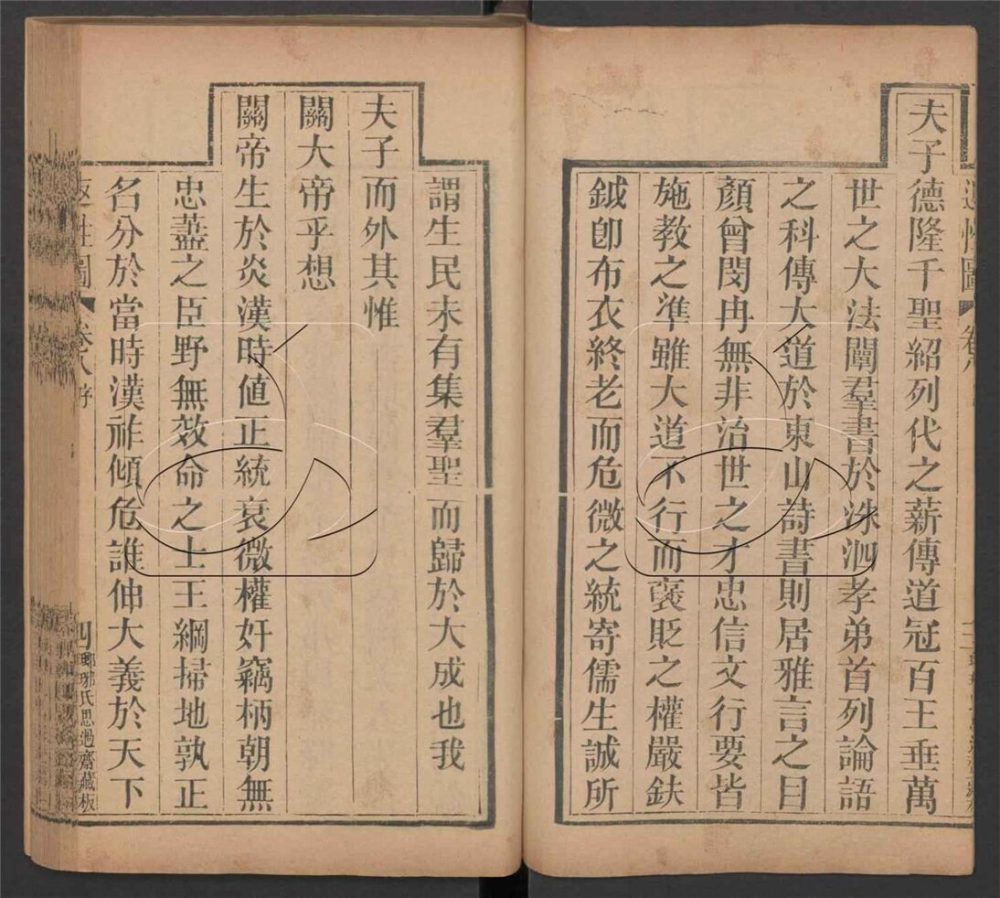 夫子德隆千聖紹列代之薪傳道冠百王垂萬
世之大法闡羣書於洙泗孝弟首列論語
之科傳大道於東山詩書則居雅言之目
顏曾閔冉無非治世之才忠信文行要皆
施教之準雖大道不行而褒貶之權嚴鈇
鉞卽布衣終老而危微之統寄儒生誠所
謂生民未有集羣聖而歸於大成也我
夫子而外其惟
關大帝乎想
關帝生於炎漢時値正統衰微權奸竊柄朝無
忠藎之臣野無效命之士王綱掃地孰正
名分於當時漢祚傾危誰伸大義於天下
性圖 卷八 序 四 瑯琊氏思過齋藏板